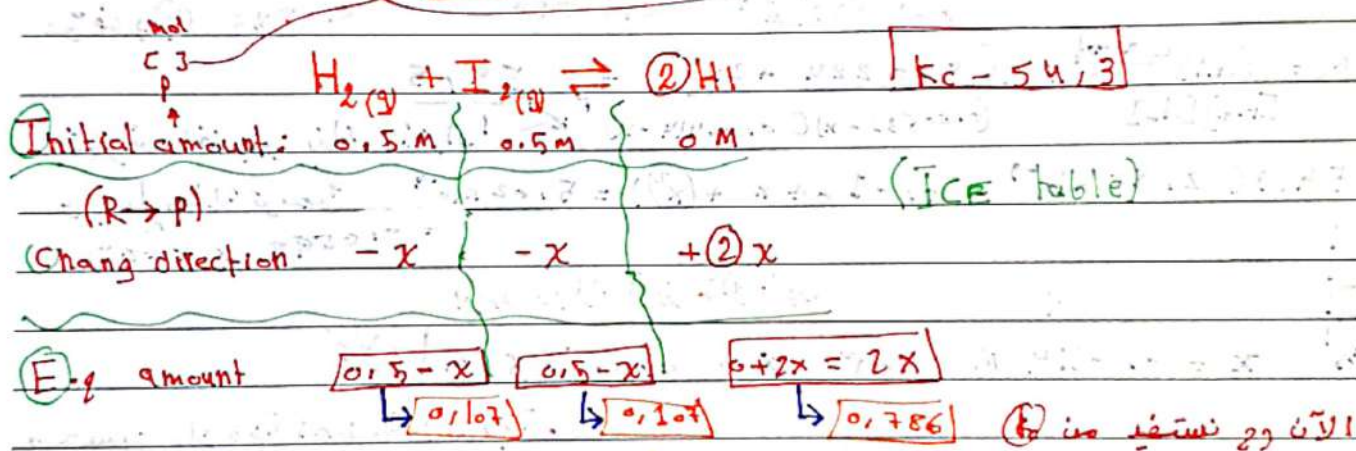 mol
[ ]
P
H₂(g) + I₂(g) ⇌ ②HI Kc = 54,3
Initial amount: 0,5 M 0.5 M 0 M
(R → P) (ICE table)
Chang direction. - x - x + ② x
E-q amount 0,5 - x 0,5 - x 0 + 2x = 2x
0,107 0,107 0,786 الآن رح نستفيد من